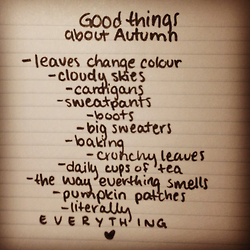 Good things
about Autumn
-leaves change colour
-cloudy skies
-cardigans
-sweatpants
-boots
-big sweaters
-baking
-crunchy leaves
-daily cups of tea
-the way everthing smells
-pumpkin patches
-literally
EVERYTHING